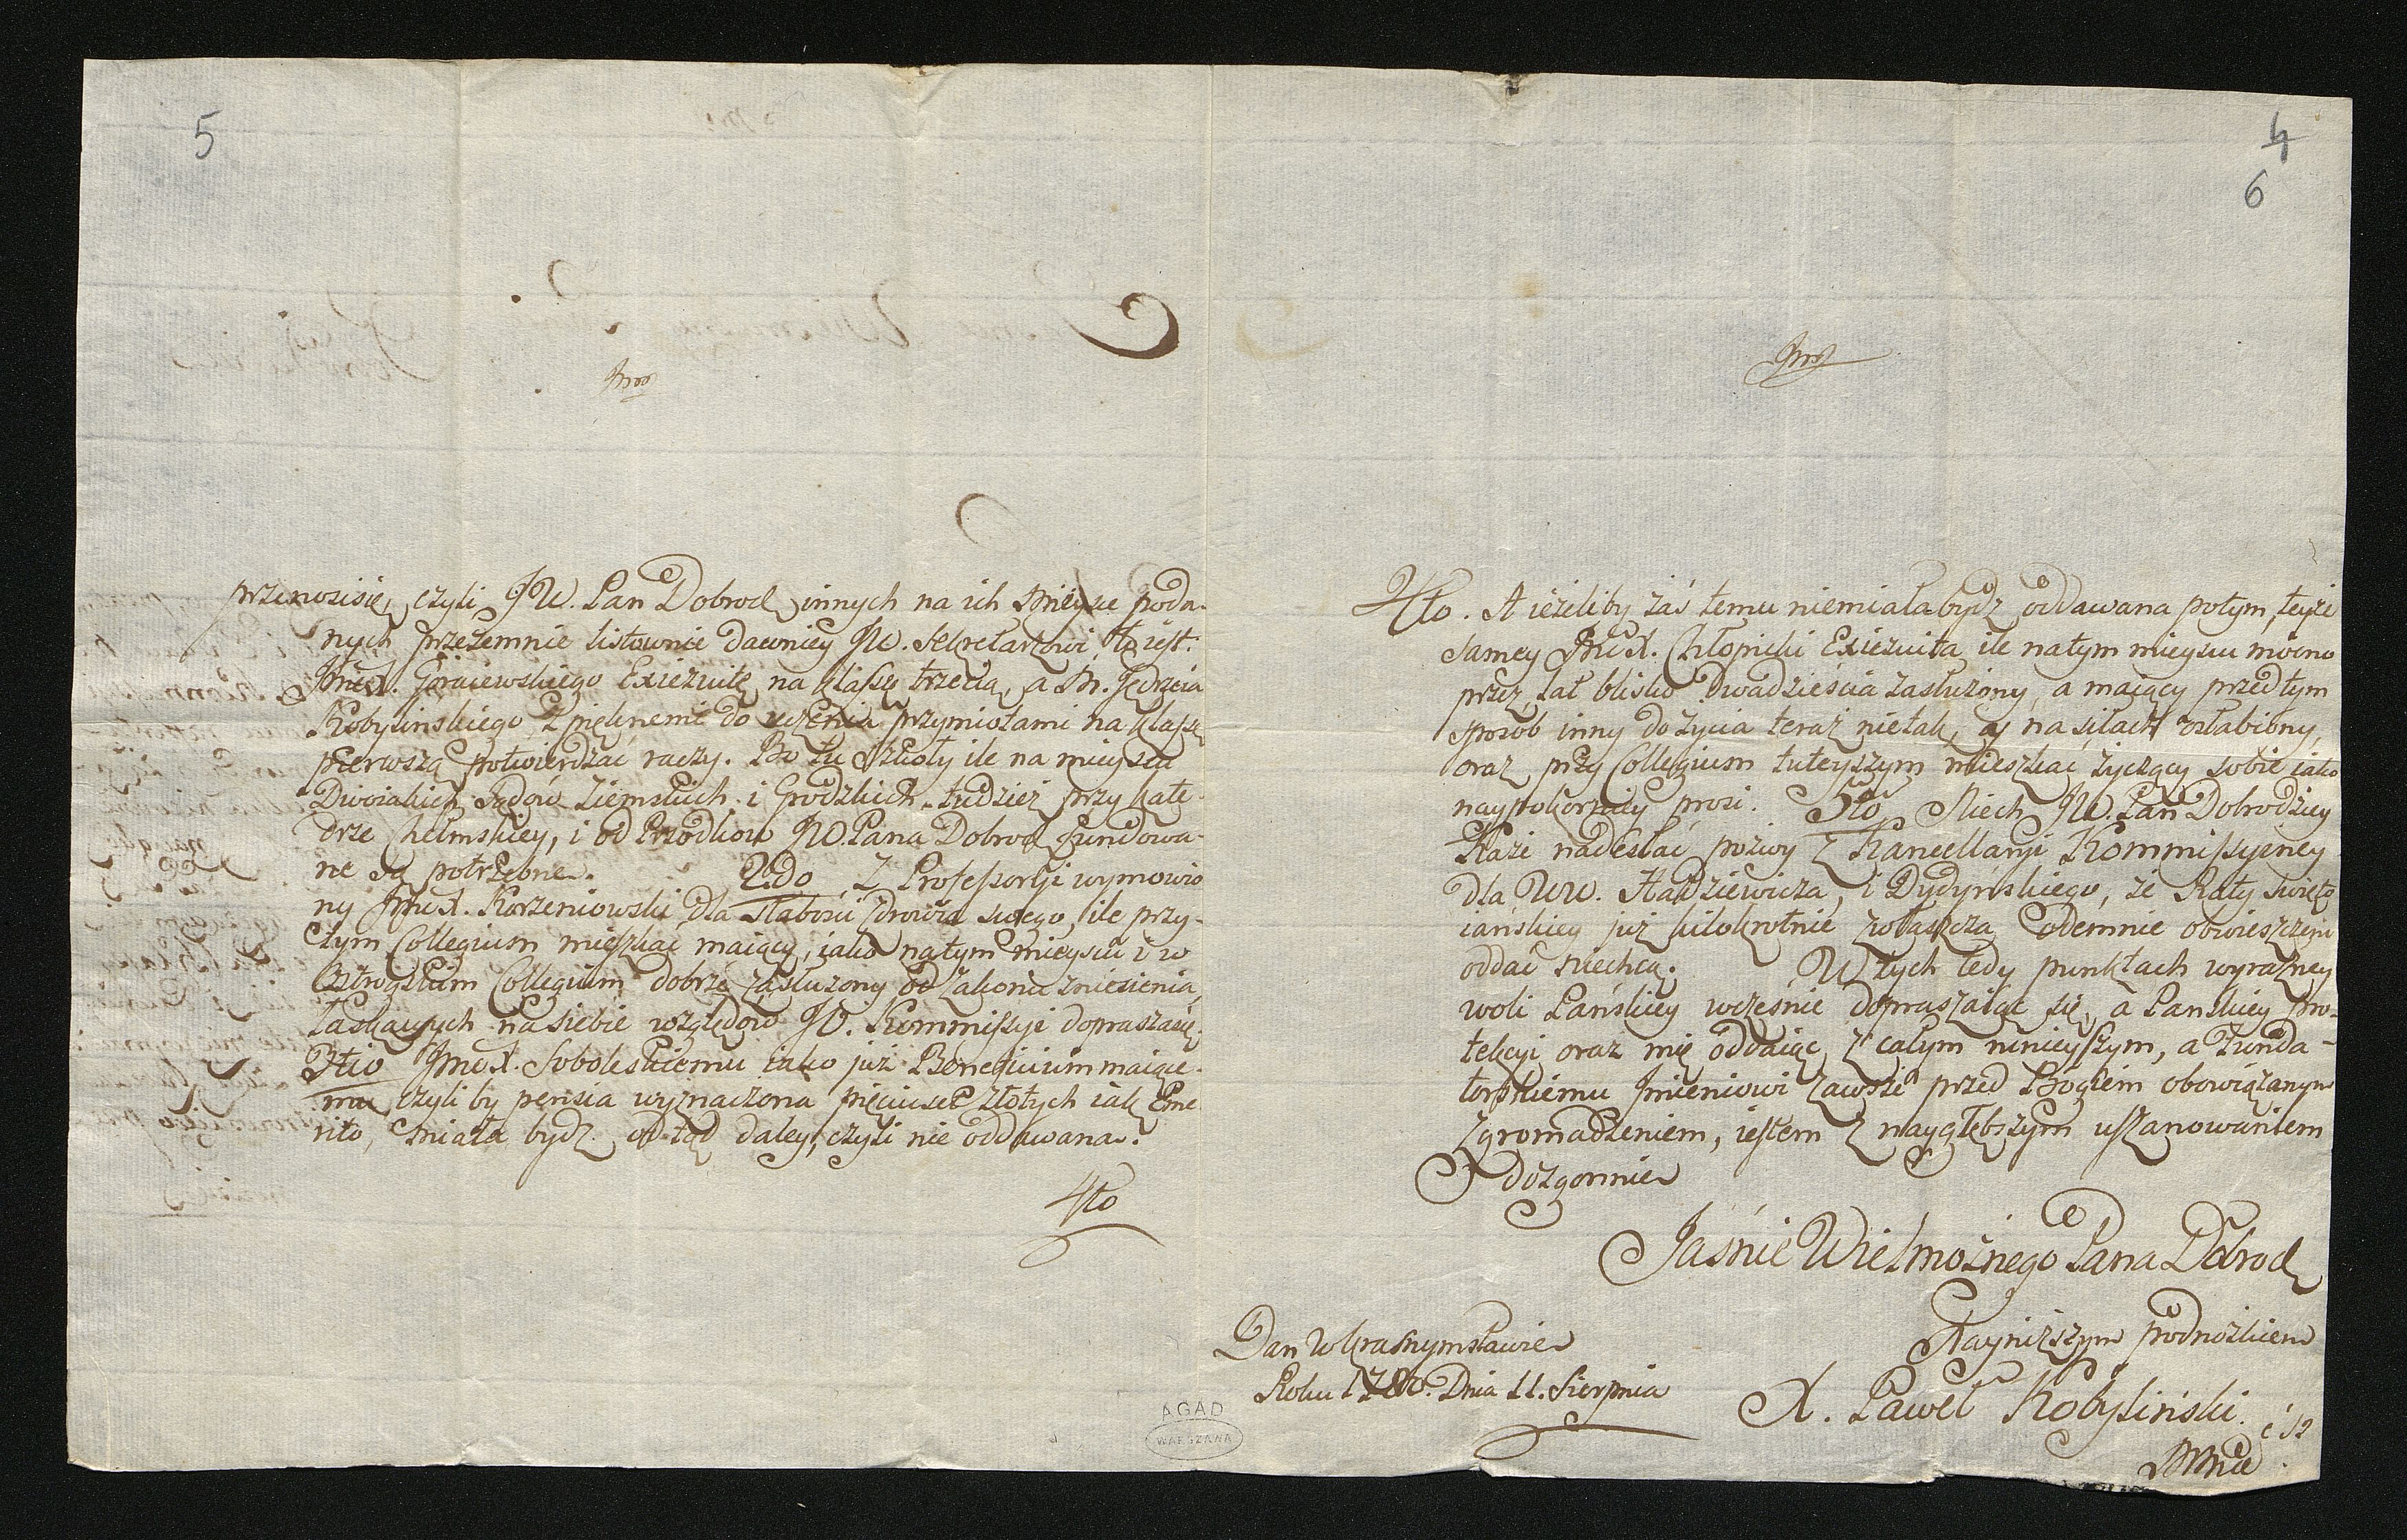 5
Imo
przenosi się, czyli JW. Pan Dobrod innych na ich mieysce poda-
nych przezemnie listownie dawniey JW. Sekretarzowi, to iest:
Jmć X. Goraiewskiego Exiezuitę na klassę trzecią, a M. Jędrzeia
Kobylinskiego z pięknemi do uczenia przymiotami na klassę
pierwszą potwierdzać raczy. Bo tu szkoły ile na mieyscu
Dwoiakich Sądów Ziemskich i Grodzkich tudzież przy Kate-
drze Chełmskiey, i od Przodkow JW. Pana Dobrod fundowa-
ne są potrzebne. 2do Z Professoryi wymowio
ny Jmć X. Korzeniowski dla słabości zdrowia swego, ile przy-
tym Collegium mieszkać maiący, iako na tym mieyscu i w
Collegium dobrze zasłużony od Zakonu zniesienia
łaskawych na siebie względow JW. Kommissyi doprasza się.
3tio Jmć X. Sobolewskiemu iako już Beneficium maiące-
mu czyli by pensia wyznaczona pięciuset złotych iak Eme
rito, miała bydz od tąd daley, czyli nie oddawana.
4to
4
6
4to. A ieżeliby zaś temu nie miała bydź oddawana potym, teyże
samey Jmć X. Chłopicki Exiezuita ile na tym mieyscu mocno
przez lat blisko Dwadzieścia zasłużony, a maiący przed tym
sposób inny do życia teraz nie tak, y na siłach osłabiony,
oraz przy Collegium tuteyszym mieszkać życzący sobie iako
naypokorniey prosi. 5to Niech JW. Pan Dobrodziey
Każe nadesłać pozwy z Kancellaryi Kommissyiney
dla WW. Hadziewicza, i Dydyńskiego, że Raty Swięto
iańskiey już kilokrotnie zwłaszcza odemnie obwieszczeni
oddać niechcą. W tych tedy punktach wyrazney
woli Pańskiey wcześnie dopraszaiąc się, a Panskiey pro-
tekcyi oraz mię oddaiąc, z całym nineyszym, a Funda-
torskiemu Jmieniowi zawsze przed Bogiem obowiązanym
Zgromadzeniem, iestem z naygłębszym uszanowaniem
dozgonnie
Jaśnie Wielmożnego Pana Dobrod
Nayniższym podnożkiem
Dan w Krasnymstawie
Roku Dnia 11. Sierpnia
X. Paweł Kobyliński.
AGAD
WARSZAWA